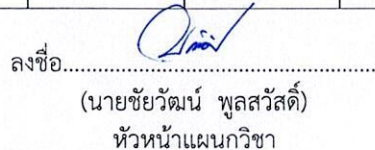 ลงชื่อ........................................................
(นายชัยวัฒน์ พูลสวัสดิ์)
หัวหน้าแผนกวิชา